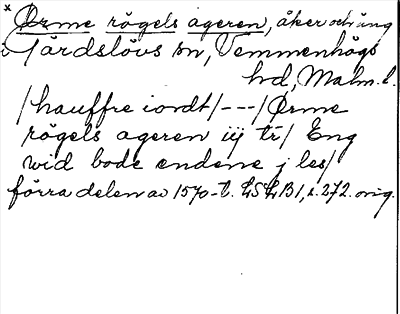 × Ørme rögels ageren, åker och äng
i Gärdslövs sn, Vemmenhögs
hd, Malm. l.
/hauffre iordt/---/Ørme
rögels ageren iij tr/ Eng
wid bode endene j les/
förra delen av 1570-t. LSLB1, s. 272. orig.